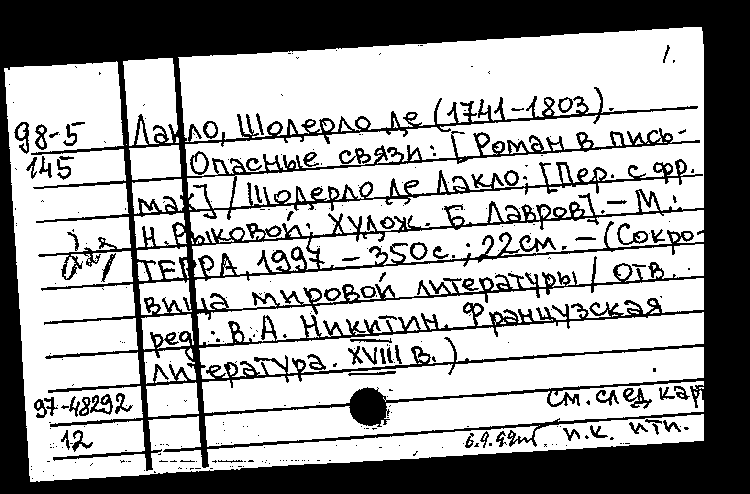 1.
98-5
145
Лакло, Шодерло де (1741-1803).
Опасные связи: [Роман в пись-
мах] / Шодерло де Лакло; [Пер. с фр.
Н. Рыковой; Худож. Б. Лавров]. - М.:
ТЕРРА, 1997. - 350 с.; 22 см. - (Сокро-
вища мировой литературы / Отв.
ред.: В. А. Никитин. Французская
литература. XVIII в.).
97-48292
12
См. след. карт
п.к. итп.